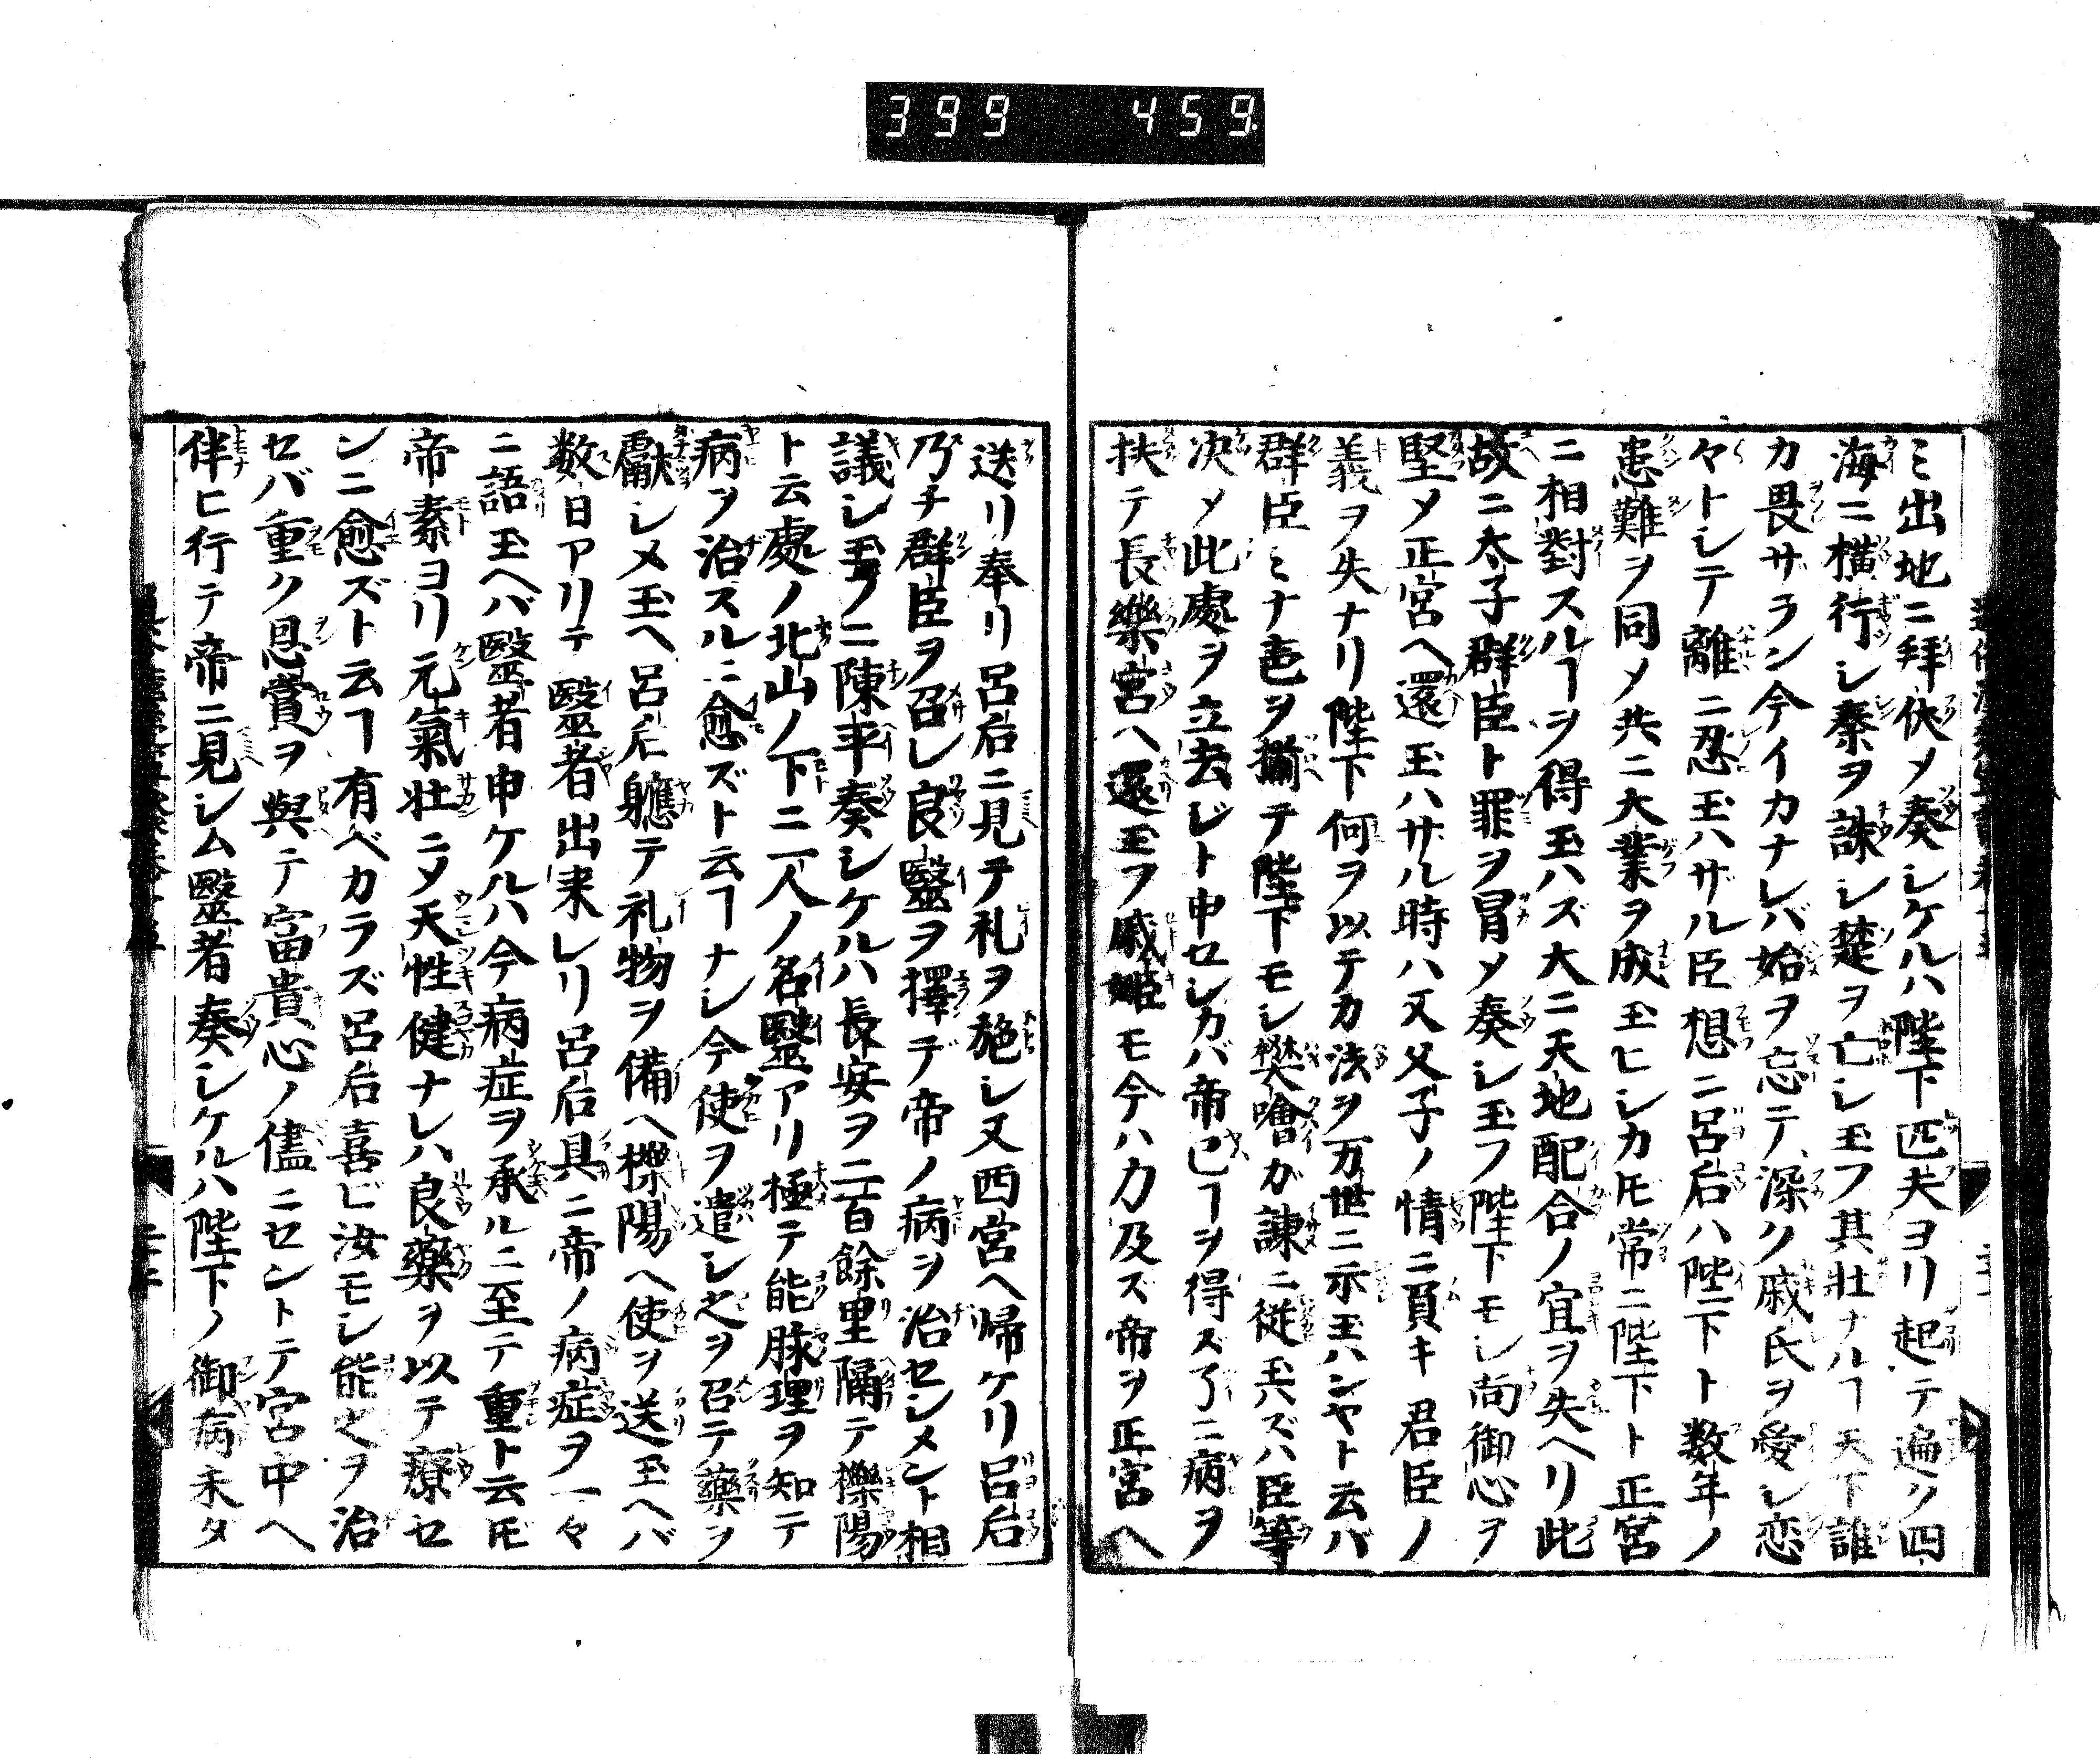 399 459
ミ出地ニ拜伏〆奏シケルハ陛下匹夫ヨリ起テ遍ク四
海ニ横行シ秦ヲ誅シ楚ヲ亡シ玉フ其壮ナルヿ天下誰
カ畏サラン今イカナレバ始ヲ忘テ深ク戚氏ヲ愛シ恋
々トシテ離ニ忍玉ハザル臣想ニ呂后ハ陛下ト数年ノ
患難ヲ同〆共ニ大業ヲ成玉ヒシカ𪜈常ニ陛下ト正宮
ニ相對スルヿヲ得玉ハズ大ニ天地配合ノ宜ヲ失ヘリ此
故ニ太子群臣ト罪ヲ冒〆奏シ玉フ陛下モシ尚御心ヲ
堅〆正宮ヘ還玉ハザル時ハ又父子ノ情ニ負キ君臣ノ
義ヲ失ナリ陛下何ヲ以テカ法ヲ万世ニ示玉ハンヤト云バ
群臣ミナ色ヲ揃テ陛下モシ樊噲ガ諌ニ従玉ハズハ臣等
决〆此處ヲ立去ジト申セシカバ帝已ヿヲ得ズ了ニ病ヲ
扶テ長樂宮ヘ還玉フ戚姫モ今ハ力及ズ帝ヲ正宮ヘ
送リ奉リ呂后ニ見テ礼ヲ施シ又西宮ヘ帰ケリ呂后
乃チ群臣ヲ召シ良醫ヲ擇デ帝ノ病ヲ治セシメント相
議シ玉フニ陳平奏シケルハ長安ヲ二百餘里隔テ櫟陽
ト云處ノ北山ノ下ニ一人ノ名醫アリ極テ能脉理ヲ知テ
病ヲ治スルニ愈ズト云ヿナシ今使ヲ遣シ之ヲ召テ藥ヲ
獻シメ玉ヘ呂后軈テ礼物ヲ備ヘ櫟陽ヘ使ヲ送玉ヘバ
数日アリテ醫者出来レリ呂后具ニ帝ノ病症ヲ一々
ニ語玉ヘバ醫者申ケルハ今病症ヲ承ルニ至テ重ト云𪜈
帝素ヨリ元氣壮ニ〆天性健ナレハ良藥ヲ以テ療セ
ンニ愈ズト云ヿ有ベカラズ呂后喜ビ汝モシ能之ヲ治
セバ重ク恩賞ヲ與テ富貴心ノ儘ニセントテ宮中ヘ
伴ヒ行テ帝ニ見シム醫者奏シケルハ陛下ノ御病未タ